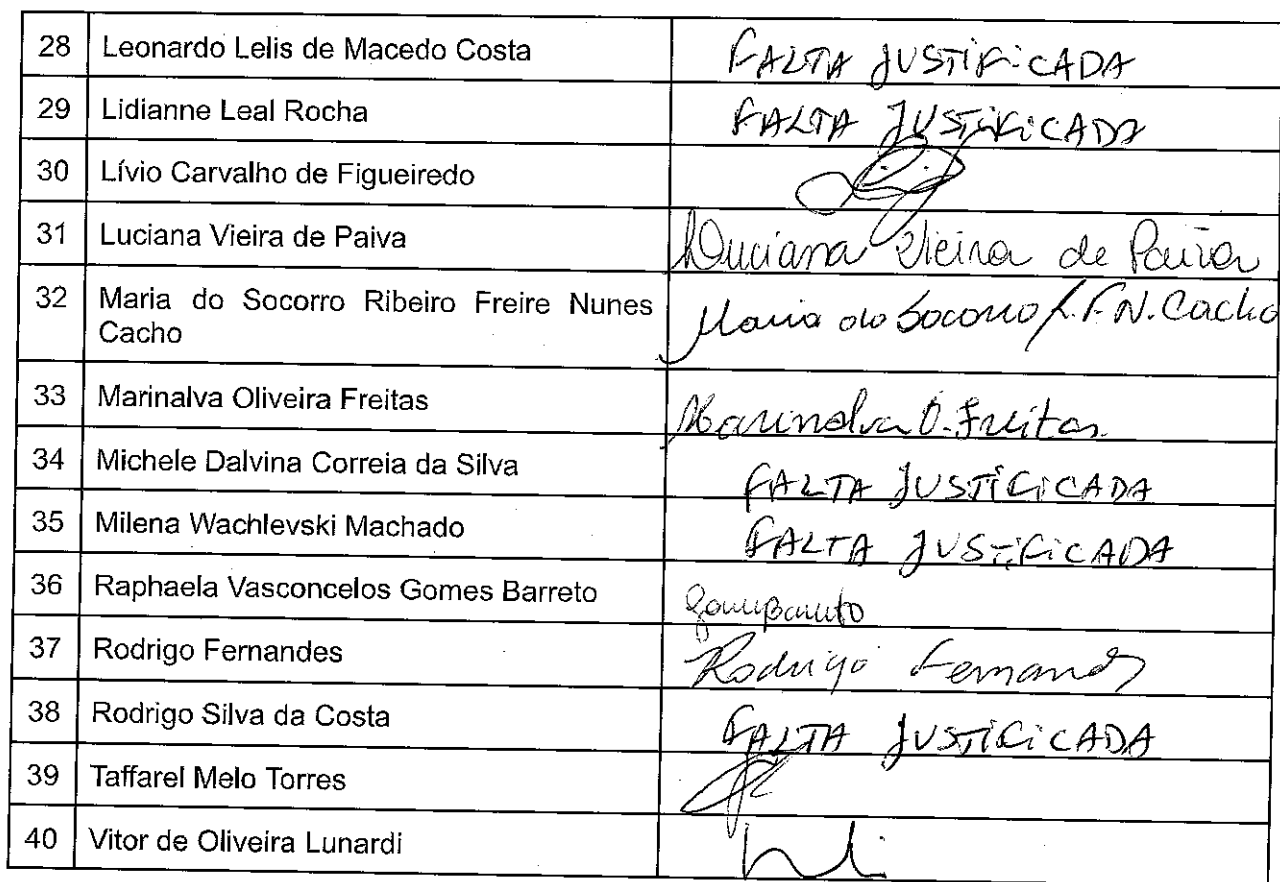 28 Leonardo Lelis de Macedo Costa FALTA JUSTIFICADA
29 Lidianne Leal Rocha FALTA JUSTIFICADA
30 Lívio Carvalho de Figueiredo
31 Luciana Vieira de Paiva Luciana Vieira de Paiva
32 Maria do Socorro Ribeiro Freire Nunes
Cacho Maria do Socorro R.F.N. Cacho
33 Marinalva Oliveira Freitas Marinalva O. Freitas
34 Michele Dalvina Correia da Silva FALTA JUSTIFICADA
35 Milena Wachlevski Machado FALTA JUSTIFICADA
36 Raphaela Vasconcelos Gomes Barreto
37 Rodrigo Fernandes Rodrigo Fernandes
38 Rodrigo Silva da Costa FALTA JUSTIFICADA
39 Taffarel Melo Torres
40 Vitor de Oliveira Lunardi